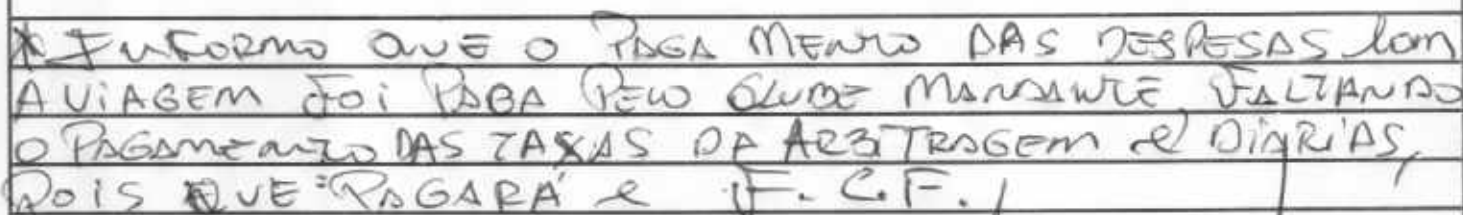 * INFORMO QUE O PAGAMENTO DAS DESPESAS COM
A VIAGEM FOI PAGA PELO CLUBE MANDANTE, FALTANDO
O PAGAMENTO DAS TAXAS DA ARBITRAGEM e DIÁRIAS,
POIS QUE PAGARÁ e F.C.F.